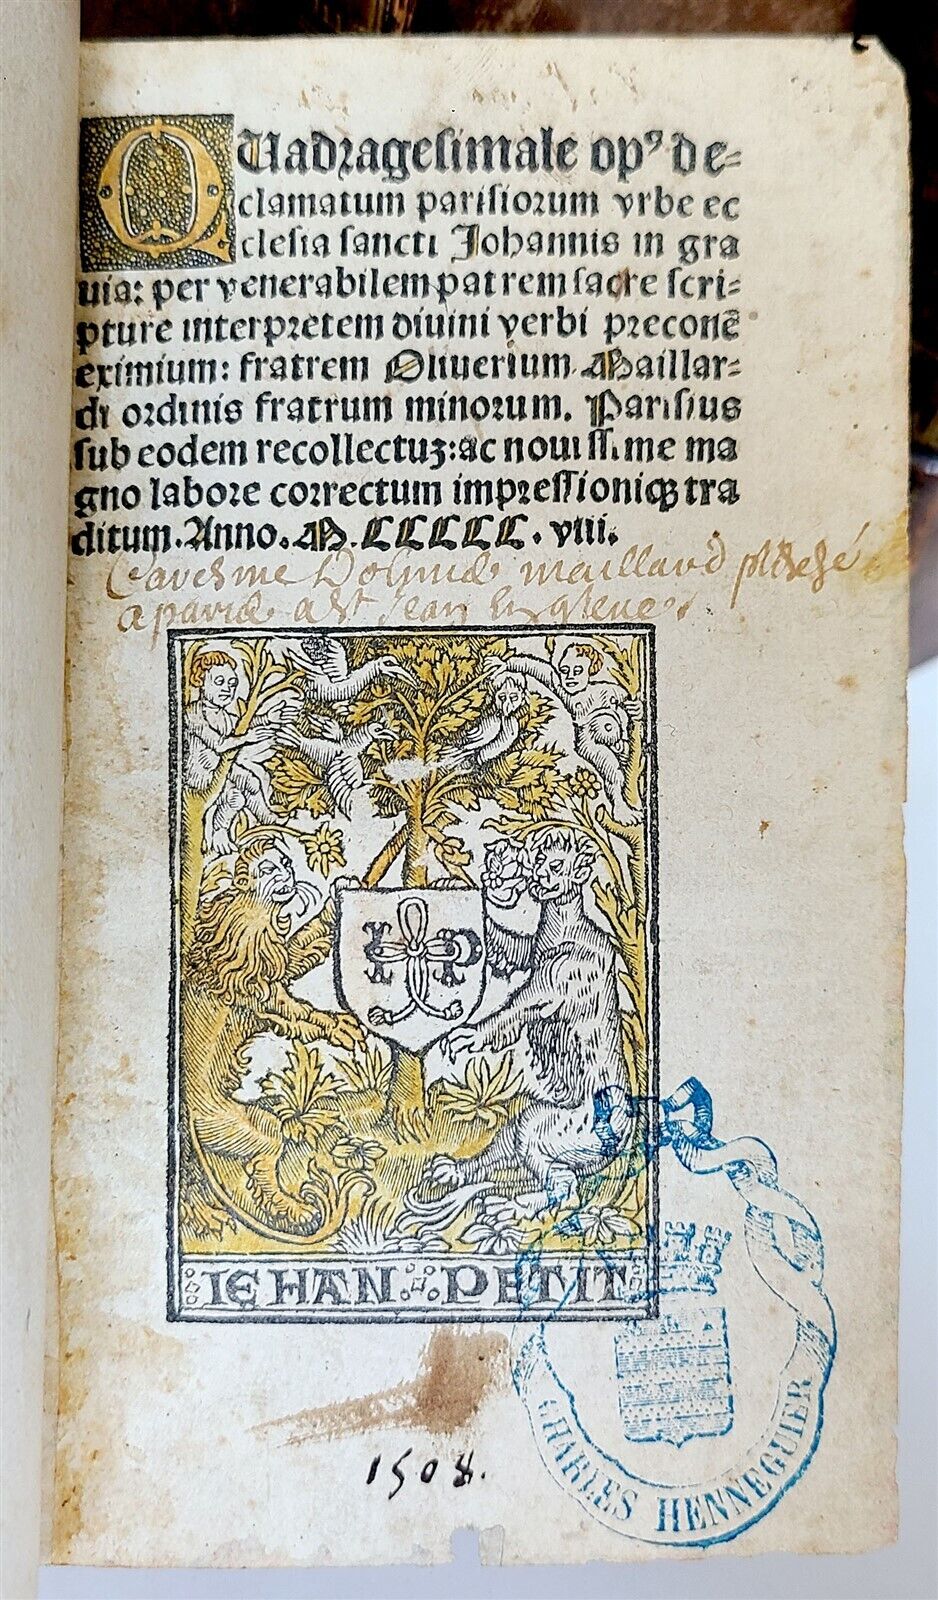 QUadragesimale opꝰ de=
clamatum parisiorum vrbe ec
clesia sancti Johannis in gra
uia: per venerabilem patrem sacre scri=
pture interpretem diuini verbi preconē
eximium: fratrem Oliuerium Maillar=
di ordinis fratrum minorum. Parisius
sub eodem recollectuʒ: ac nouissime ma
gno labore correctum impressioniqꝫ tra
ditum. Anno. M.CCCCC.viii.
maillard
a paris a st Jean
I P
IEHAN PETIT
1508.
CHARLES HENNEGUIER